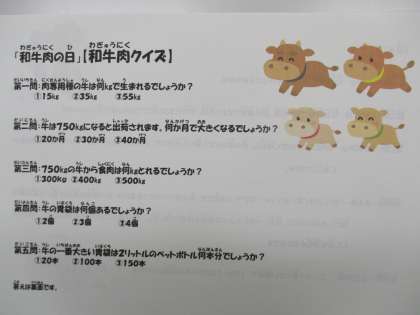 「和牛肉の日」【和牛肉クイズ】
第一問:肉専用種の牛は何kgで生まれるでしょうか?
①15kg ②35kg ③55kg
第二問:牛は750kgになると出荷されます。何か月で大きくなるでしょうか?
①20か月 ②30か月 ③40か月
第三問:750kgの牛から食肉は何kgとれるでしょうか?
①300Kg ②400kg ③500kg
第四問:牛の胃袋は何個あるでしょうか?
①2個 ②3個 ③4個
第五問:牛の一番大きい胃袋は2リットルのペットボトル何本分でしょうか?
①20本 ②100本 ③150本
答えは裏面です。